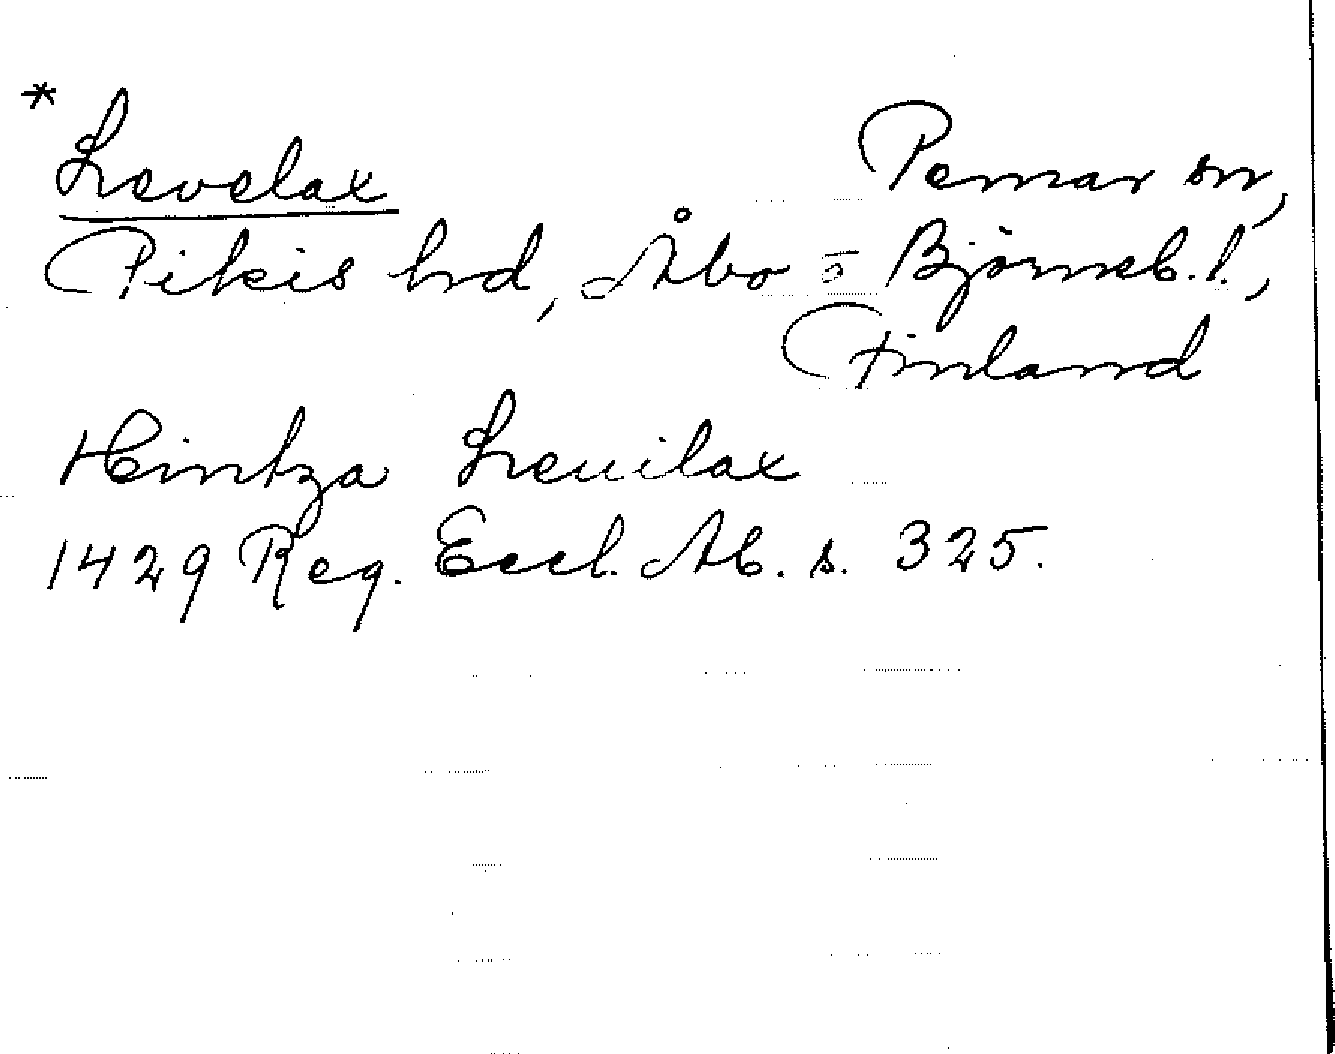 * Levelax Pemar sn,
Pikis hd, Åbo o Björneb. l.,
Finland
Hintza Leuilax
1429 Reg. Eccl. Ab. s. 325.